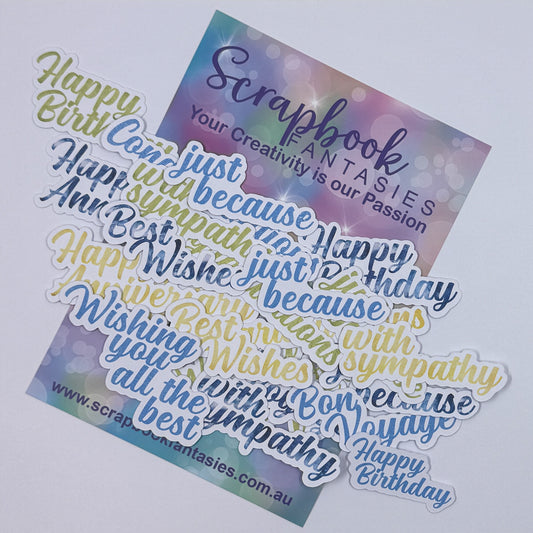 Scrapbook
FANTASIES
Your Creativity is our Passion
Happy
Birth
Con
just
because
Happy
Ann
with
sympathy
Best
Wishe
just
because
Happy
Birthday
Happ
Anniversar
Best
Wishes
with
sympathy
Wishing
you
all the
best
with
sympathy
Bon
Voyage
because
Happy
Birthday
www.scrapbookfantasies.com.au